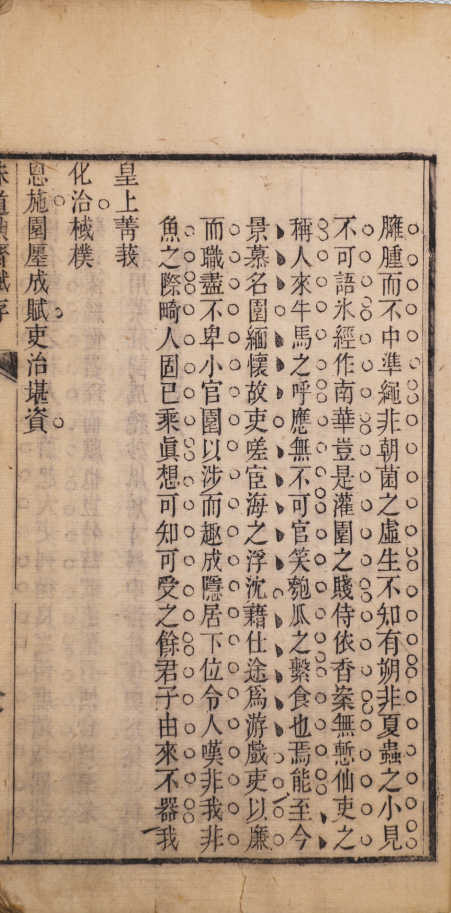 臃腫而不中準繩非朝菌之虛生不知有朔非夏蟲之小見
不可語氷經作南華豈是灌園之賤侍依香案無慙仙吏之
稱人來牛馬之呼應無不可官笑匏瓜之繫食也焉能至今
景慕名園緬懷故吏嗟宦海之浮沈藉仕途爲游戲吏以廉
而職盡不卑小官園以涉而趣成隱居下位令人嘆非我非
魚之際畸人固已乘眞想可知可受之餘君子由來不器我
皇上菁莪
化治棫樸
恩施園廛成賦吏治堪資